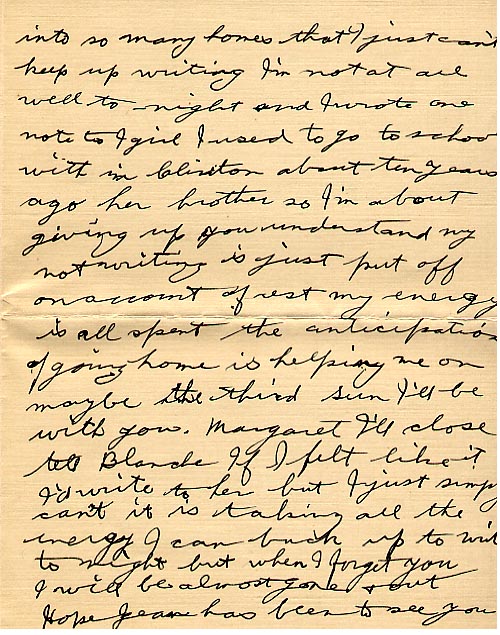 into so many homes that I just can't
keep up writing I'm not at all
well to-night and I wrote one
note to I girl I used to go to school
with in Clinton about ten years
ago her brother so I'm about
giving up you understand my
not writing is just put off
on account of rest my energy
is all spent the anticipation
of going home is helping me on
maybe the third sun I'll be
with you. Margaret I'll close
tell Blanche If I felt like it
I'd write to her but I just simp
can't it is taking all the
energy I can buck up to writ
to night but when I forget you
I will be almost gone out
Hope Jean has been to see you